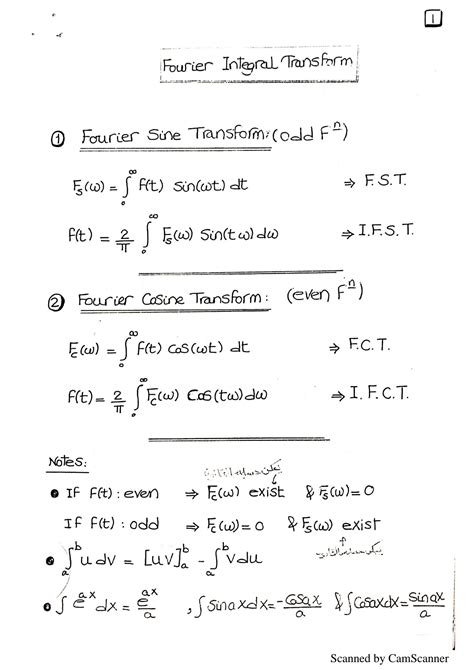 1
Fourier Integral Transform
① Fourier Sine Transform: (odd Fⁿ)
Fₛ(ω) = ∫₀^∞ f(t) sin(ωt) dt ⇒ F.S.T.
f(t) = 2/π ∫₀^∞ Fₛ(ω) Sin(tω) dω ⇒ I.F.S.T.
② Fourier Cosine Transform: (even Fⁿ)
F_c(ω) = ∫₀^∞ f(t) cos(ωt) dt ⇒ F.C.T.
f(t) = 2/π ∫₀^∞ F_c(ω) Cos(tω) dω ⇒ I.F.C.T.
Notes:
• IF f(t) : even ⇒ F_c(ω) exist & Fₛ(ω) = 0
IF f(t) : odd ⇒ F_c(ω) = 0 & Fₛ(ω) exist
• ∫ₐᵇ u dv = [uv]ₐᵇ - ∫ₐᵇ v du
• ∫ e^{ax} dx = e^{ax}/a , ∫ Sin ax dx = -Cos ax/a & ∫ Cos ax dx = Sin ax/a
Scanned by CamScanner